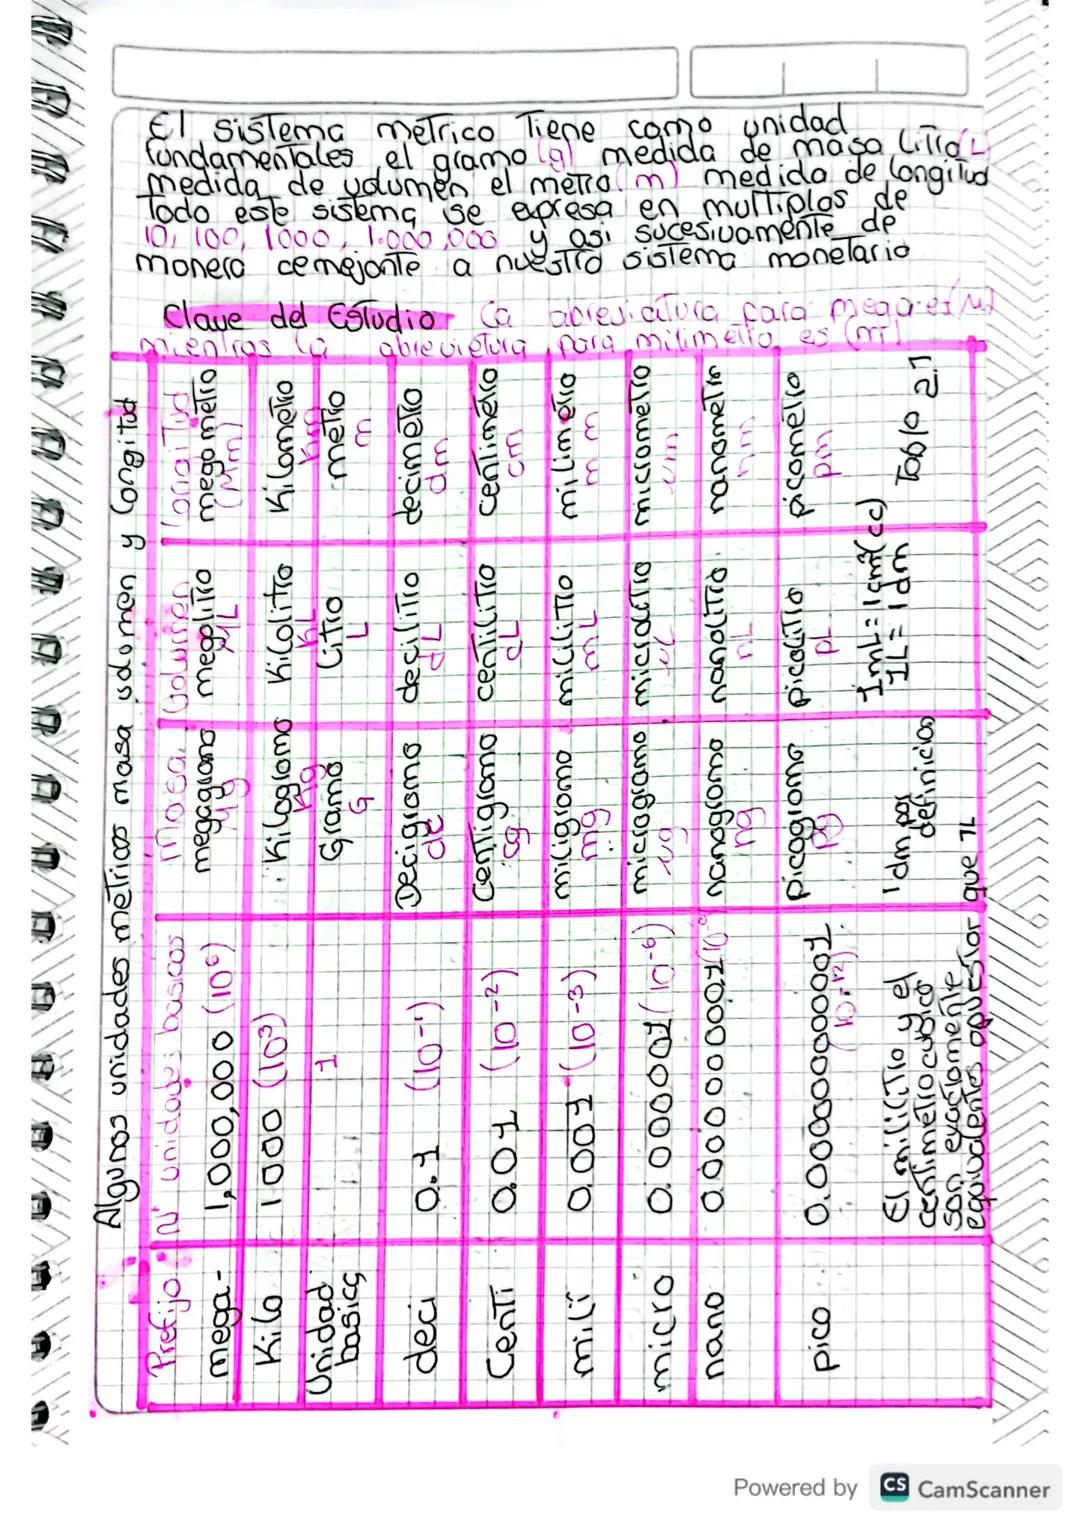 El sistema metrico Tiene como unidad
fundamentales el gramo (g) medida de masa Litro (L
medida de volumen el metro (m) medida de Longitud
Todo este sistema se expresa en multiplos de
10, 100, 1000, 1.000,000 y asi sucesivamente de
manera cemejante a nuestro sistema monetario
Clave del Estudio La abreviatura para mega es (M)
mientras la abrevietura para milimetro es (m)
Algunos unidades metricos masa volumen y Longitud
Prefijo N° unidades basicos masa Volumen Longitud
mega- 1,000,000 (10⁶) megagramo Mg megaliTro ML megametro (Mm)
Kilo 1000 (10³) Kilogramo Kg KiloliTro KL Kilometro Km
Unidad basica 1 Gramo G LiTro L metro m
deci 0.1 (10⁻¹) Decigramo dc deciliTro dL decimetro dm
Centi 0.01 (10⁻²) Centigramo cg centiliTro cL centimetro cm
mili 0.001 (10⁻³) miligramo mg mililiTro mL milimetro m m
micro 0.000001 (10⁻⁶) microgramo ug microliTro uL micrometro um
nano 0.000000001 nanogramo ng nanoliTro nL nanometro nm
pico 0.000000000001 (10⁻¹²) picogramo pg picoliTro pL picometro pm
El mililitro y el 1 dm por 1mL = 1cm³(cc) Tabla 2.1
centimetro cubico definicion 1L = 1dm
son exactamente
equivalentes aquestor que 1L
Powered by CS CamScanner